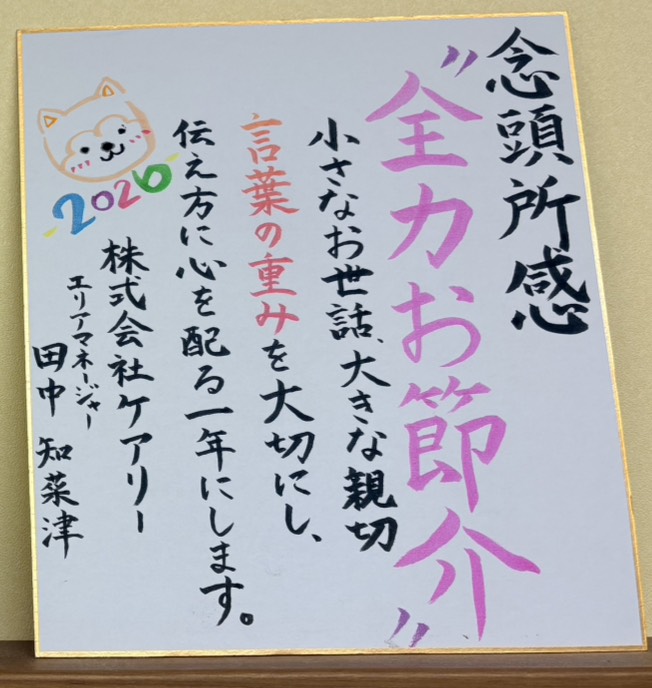 念頭所感
〝全力お節介〟
小さなお世話、大きな親切
言葉の重みを大切にし、
伝え方に心を配る一年にします。
2026
株式会社ケアリー
エリアマネージャー
田中 知菜津